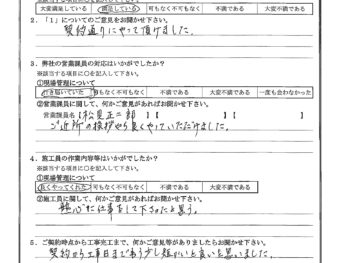 大変満足している 満足している 可もなく不可もなく 不満である 大変不満である
2.「1」についてのご意見をお聞かせ下さい。
契約通りにやって頂けました。
3. 弊社の営業課員の対応はいかがでしたか？
※該当する項目に○を記入して下さい。
①現場管理について
行き届いていた 可もなく不可もなく 不満である 大変不満である 一度も会わなかった
②営業課員に関して、何かご意見があればお聞かせ下さい。
営業課員名【 】【 】【 】
ご近所の挨拶やら良くやっていただけました。
4. 施工員の作業内容等はいかがでしたか？
※該当する項目に○を記入して下さい。
①現場管理について
良くやってくれた 可もなく不可もなく 不満である 大変不満である
②施工員に関して、何かご意見があればお聞かせ下さい。
熱心に仕事をして下さったと思う。
5. ご契約時点から工事完工まで、何かご意見等がありましたらお聞かせ下さい。
契約から工事日までもう少し短いと良いと思いました。